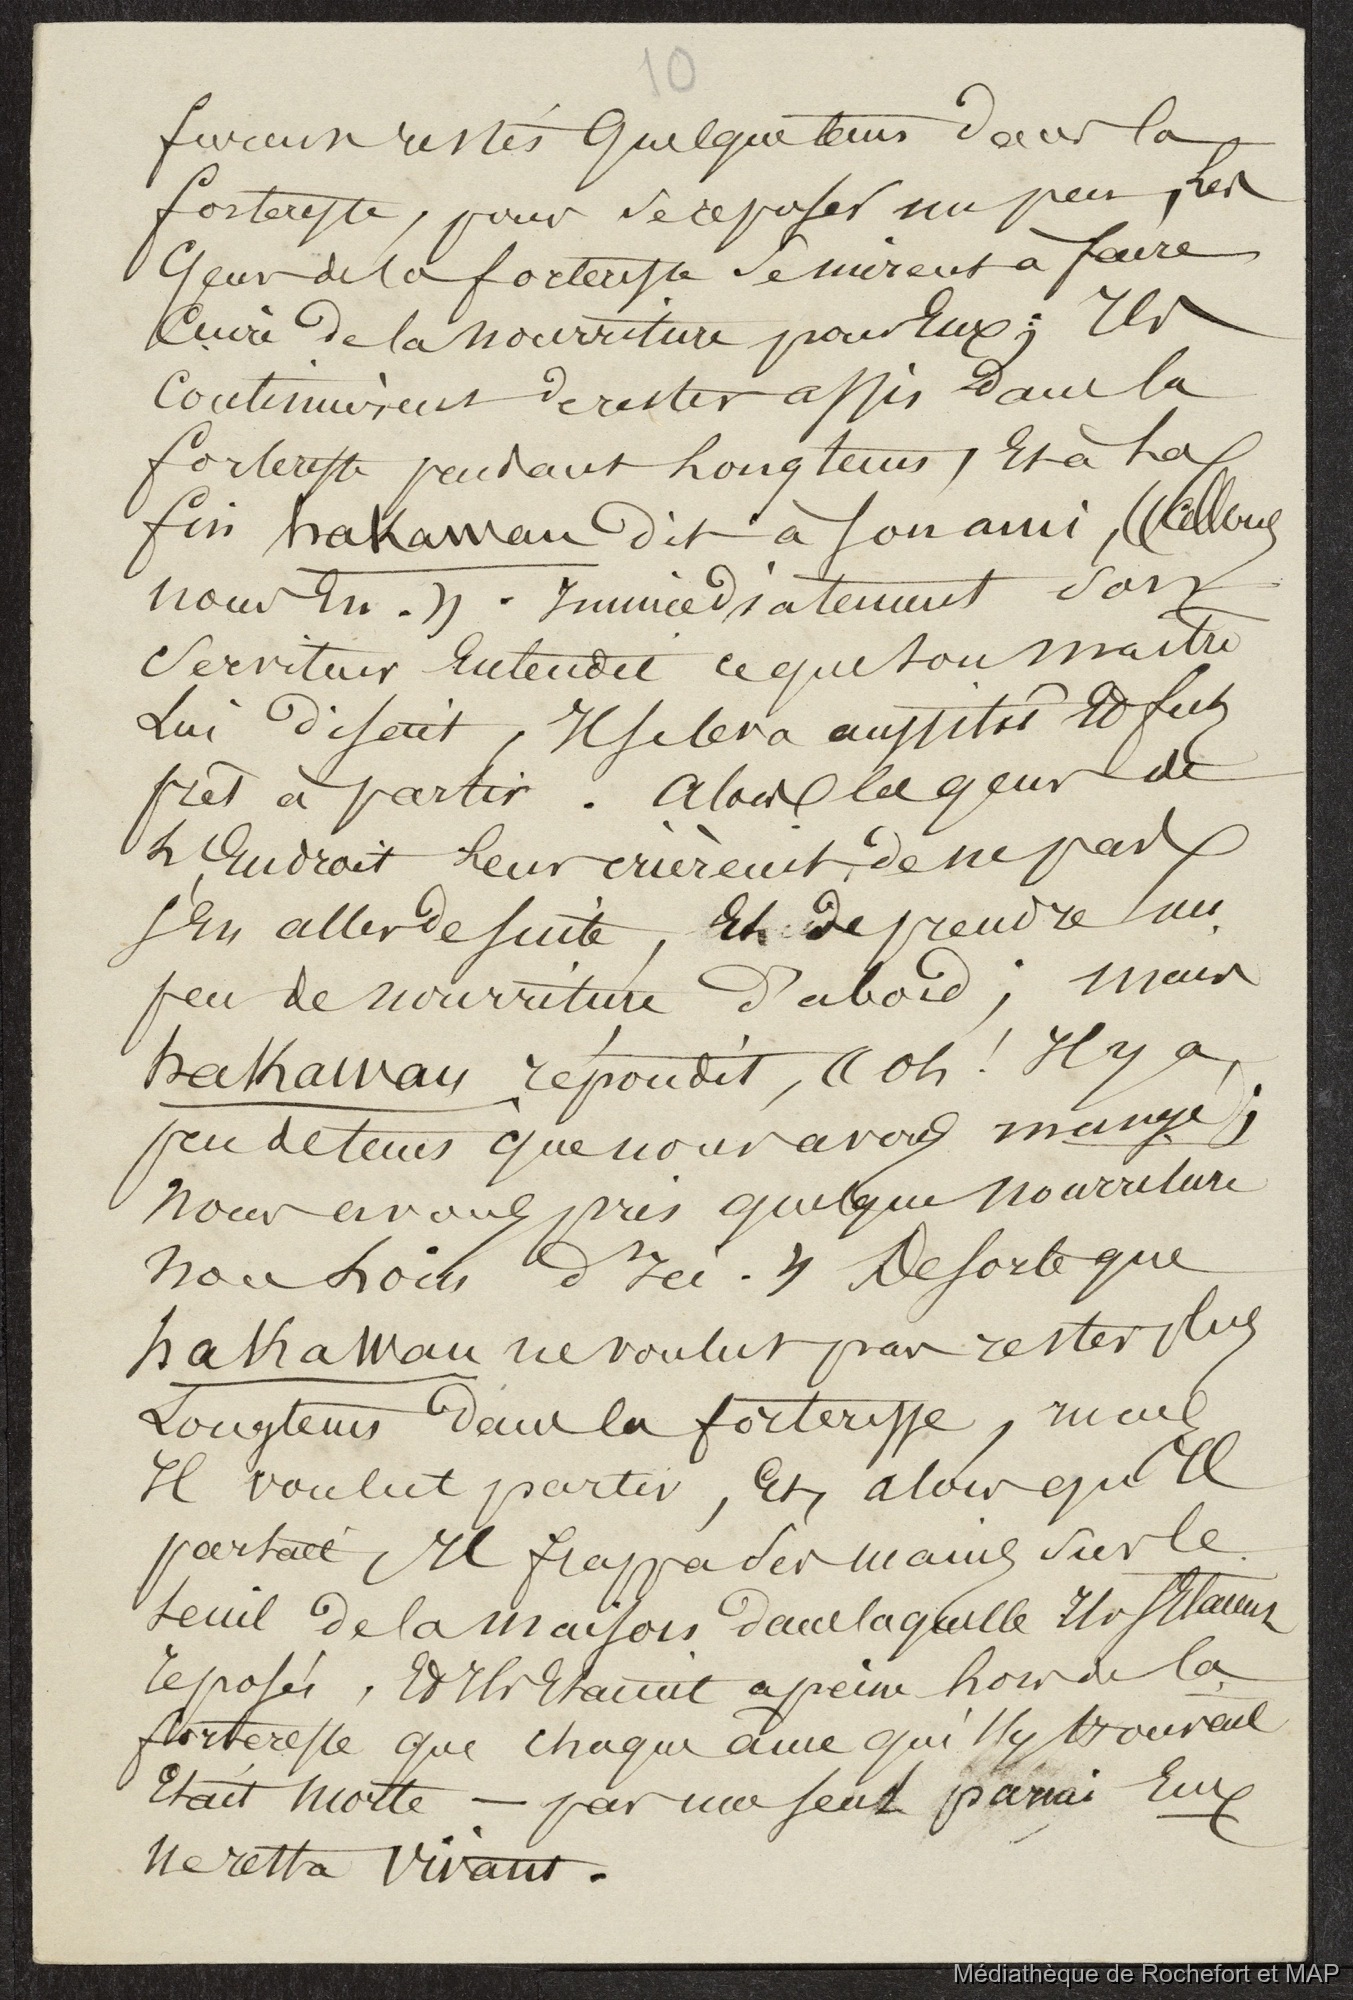 10
furent restés Quelque tems dans la
forteresse, pour se reposer un peu, Les
Gens de la forteresse se mirent à faire
Cuire de la nourriture pour Eux ; Ils
Continuèrent de rester assis dans la
forteresse pendant Longtems, Et à La
fin hakawau dit à son ami, « allons
nous En. » . Immédiatement son
Serviteur Entendit ce que son maître
Lui disait, Il se leva aussitôt Et fut
prêt à partir . Alors les gens de
L'Endroit Leur crièrent de ne pas
s'En aller de suite, Et de prendre un
peu de nourriture d'abord ; mais
hakawau répondit, « oh ! Il y a
peu de tems que nous avons mangé ;
nous avons pris quelque nourriture
non Loin d'Ici . » De sorte que
hakawau ne voulut pas rester plus
Longtems dans la forteresse, mais
Il voulut partir, Et, alors qu'Il
partait, Il frappa ses mains sur le
seuil de la maison dans laquelle Ils s'Etaient
reposés, Et Ils Etaient à peine hors de la
forteresse que chaque âme qui s'y trouvait
Etait morte — pas un seul parmi Eux
ne resta vivant.
Médiathèque de Rochefort et MAP